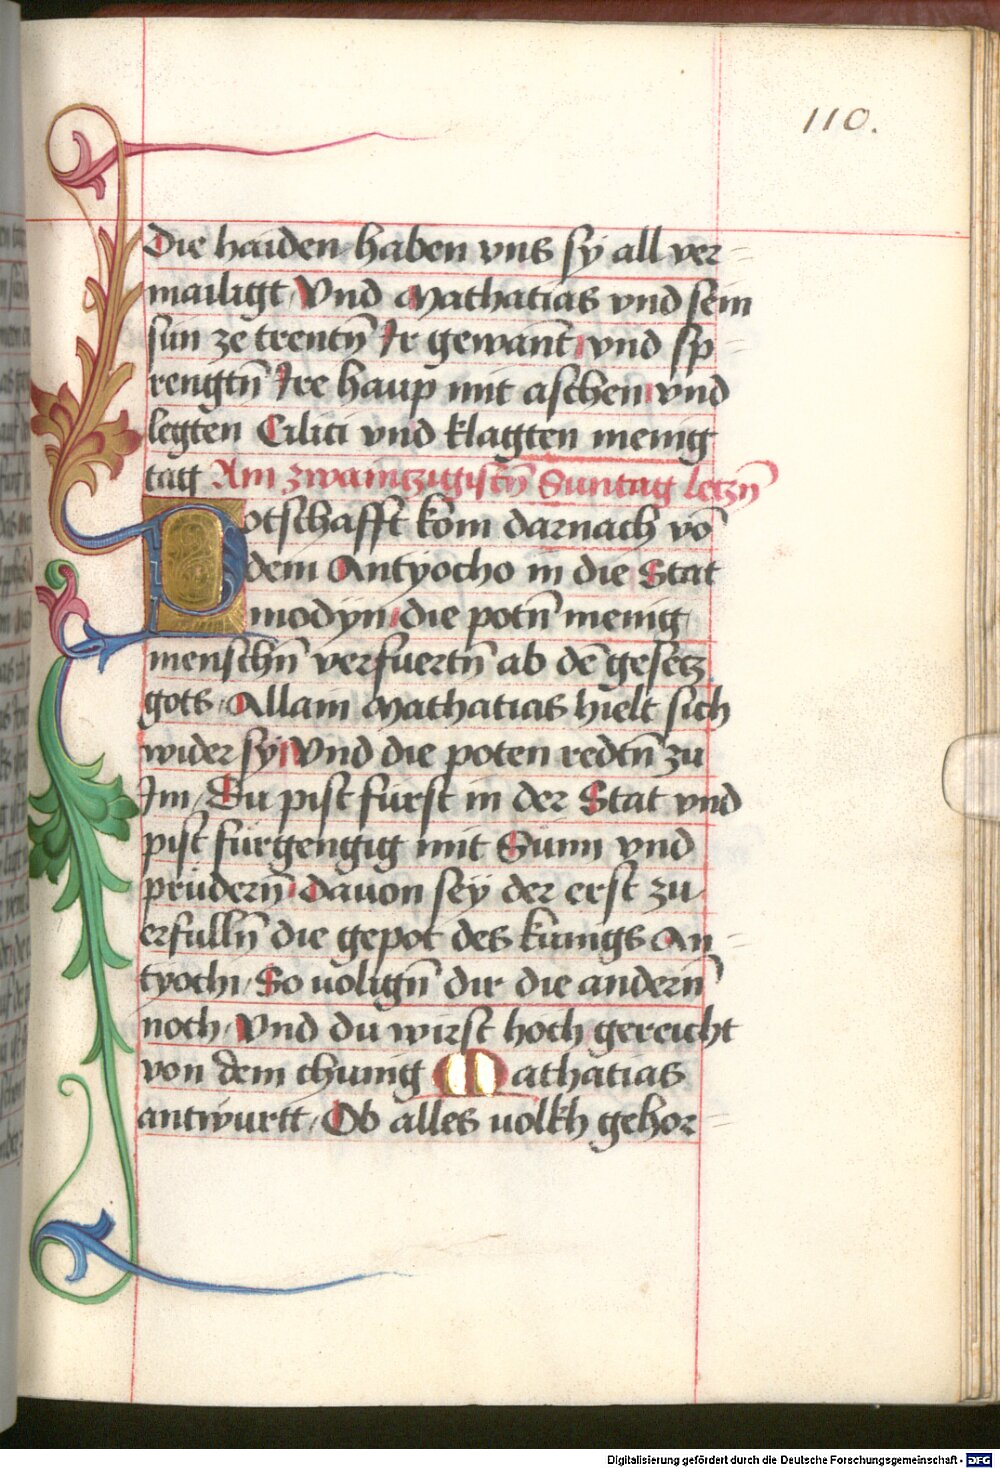 110.
Die haiden haben vns sÿ all ver=
mailigt / Vnd Mathatias vnd sein
sün ze trentn̄ Ir gewant / vnd sp=
rengtn̄ Ire haup mit aschen / vnd
legten Cilici vnd klagten menig
tag Am zwaintzigistn̄ Suntag letzn̄
Potschafft kom darnach vō
dem Antyocho in die Stat
modÿn / die potn̄ menig
menschn̄ verfuertn̄ ab dē gesetz
gots / Allain Mathatias hielt sich
wider sÿ / Vnd die poten redtn̄ zu
Im / Du pist fürst in der Stat vnd
pist fürgengig mit Sünn vnd
prüdern̄ / dauon seÿ der erst zu
erfulln̄ die gepot des kunigs An=
tyochi / So uolign̄ dir die andern̄
noch / Vnd du wirst hoch gereicht
von dem chunig Mathatias
antwurtt / Ob alles uolkh gehor=
Digitalisierung gefördert durch die Deutsche Forschungsgemeinschaft - DFG